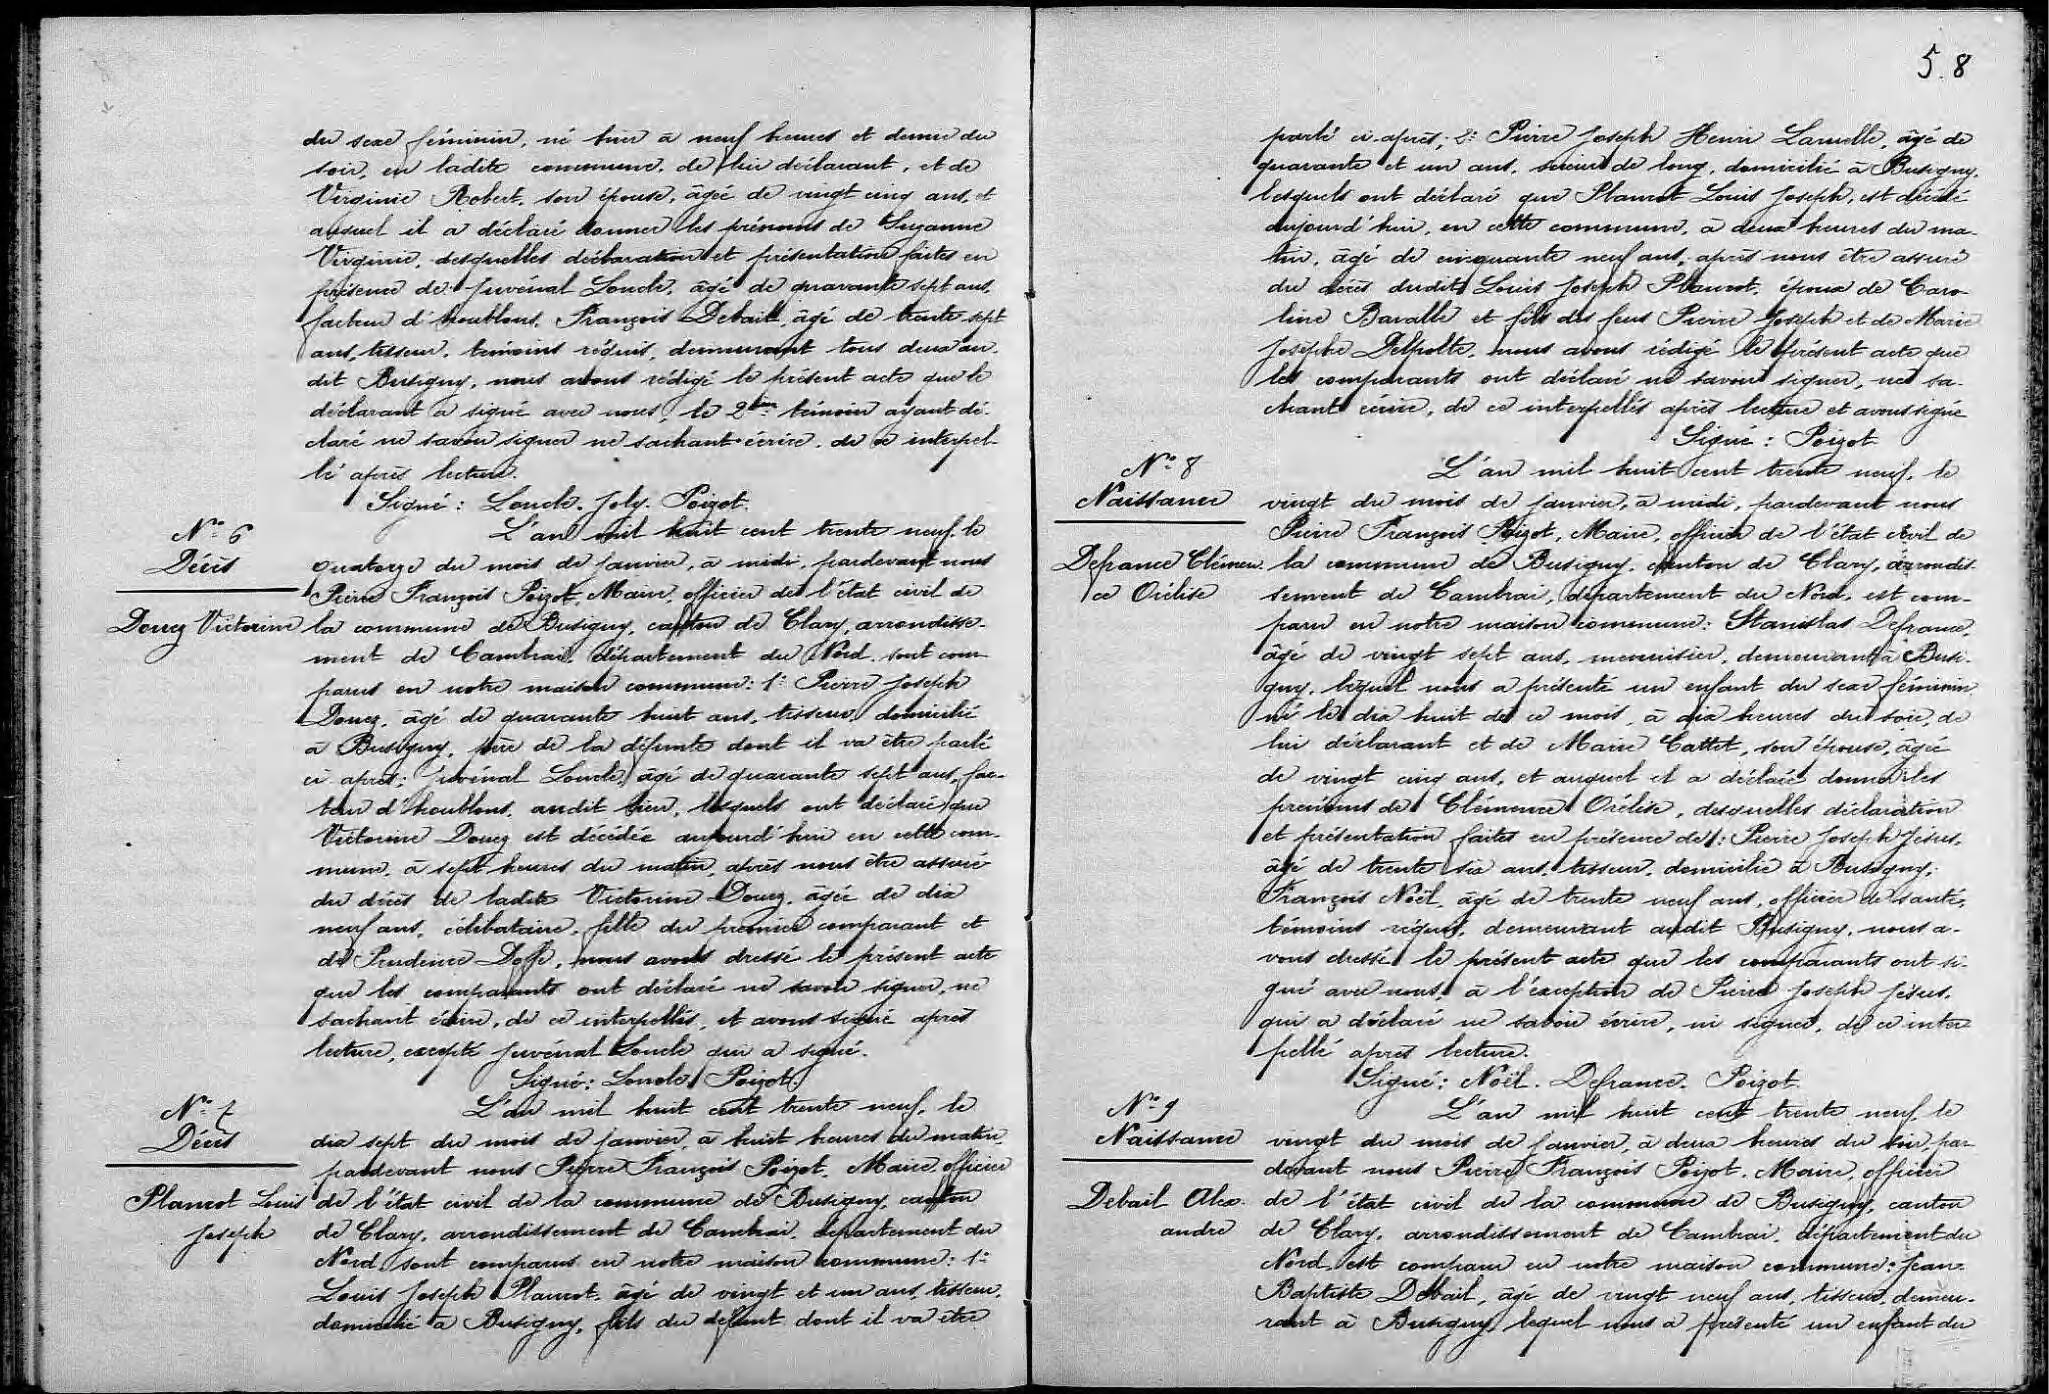 du sexe féminin, né hier à neuf heures et demie du
soir, en ladite commune, de lui déclarant, et de
Virginie Robert, son épouse, âgée de vingt cinq ans, et
auquel il a déclaré donner les prénoms de Suzanne
Virginie, desquelles déclaration et présentation faites en
présence de Juvénal Loncle, âgé de quarante sept ans,
facteur d'houblons, François Debail, âgé de trente sept
ans, tisseur, témoins requis, demeurant tous deux au
dit Busigny, nous avons rédigé le présent acte que le
déclarant a signé avec nous, le 2ème témoin ayant dé-
claré ne savoir signer ne sachant écrire, de ce interpel-
lé après lecture.
Signé : Loncle. Joly. Poizot.
N° 6
Décès
Doucz Victorine
L'an mil huit cent trente neuf, le
quatorze du mois de janvier, à midi, pardevant nous
Pierre François Poizot, Maire, officier de l'état civil de
la commune de Busigny, canton de Clary, arrondisse-
ment de Cambrai, département du Nord, sont com-
parus en notre maison commune : 1° Pierre Joseph
Doucz, âgé de quarante huit ans, tisseur, domicilié
à Busigny, père de la défunte dont il va être parlé
ci après ; Juvénal Loncle, âgé de quarante sept ans, fac-
teur d'houblons, audit lieu, lesquels ont déclaré que
Victorine Doucz est décédée aujourd'hui en cette com-
mune, à sept heures du matin, après nous être assuré
du décès de ladite Victorine Doucz, âgée de dix
neuf ans, célibataire, fille du premier comparant et
de Prudence Doffe, nous avons dressé le présent acte
que les comparants ont déclaré ne savoir signer, ne
sachant écrire, de ce interpellés, et avons signé après
lecture, excepté Juvénal Loncle qui a signé.
Signé : Loncle. Poizot.
N° 7
Décès
Plancot Louis
Joseph
L'an mil huit cent trente neuf, le
dix sept du mois de janvier, à huit heures du matin,
pardevant nous Pierre François Poizot, Maire, officier
de l'état civil de la commune de Busigny, canton
de Clary, arrondissement de Cambrai, département du
Nord, sont comparus en notre maison commune : 1°
Louis Joseph Plancot, âgé de vingt et un ans, tisseur,
domicilié à Busigny, fils du défunt dont il va être
58
parlé ci-après ; 2° Pierre Joseph Henri Laruelle, âgé de
quarante et un ans, scieur de long, domicilié à Busigny,
lesquels ont déclaré que Plancot Louis Joseph, est décédé
aujourd'hui, en cette commune, à deux heures du ma-
tin, âgé de cinquante neuf ans, après nous être assuré
du décès dudit Louis Joseph Plancot, époux de Caro-
line Bavalle et fils des feus Pierre Joseph et de Marie
Josephe Delpolte, nous avons rédigé le présent acte que
les comparants ont déclaré ne savoir signer, ne sa-
chant écrire, de ce interpellés après lecture et avons signé
Signé : Poizot
N° 8
Naissance
Defrance Clémen-
ce Orélise
L'an mil huit cent trente neuf, le
vingt du mois de janvier, à midi, pardevant nous
Pierre François Poizot, Maire, officier de l'état civil de
la commune de Busigny, canton de Clary, arrondis-
sement de Cambrai, département du Nord, est com-
paru en notre maison commune : Stanislas Defrance,
âgé de vingt sept ans, menuisier, demeurant à Busi-
gny, lequel nous a présenté un enfant du sexe féminin
né le dix huit de ce mois, à dix heures du soir, de
lui déclarant et de Marie Cattet, son épouse, âgée
de vingt cinq ans, et auquel il a déclaré donner les
prénoms de Clémence Orélise, desquelles déclaration
et présentation faites en présence de 1° Pierre Joseph Jésus,
âgé de trente six ans, tisseur, domicilié à Busigny,
François Noël, âgé de trente neuf ans, officier de santé,
témoins requis, demeurant audit Busigny, nous a-
vons dressé le présent acte que les comparants ont si-
gné avec nous, à l'exception de Pierre Joseph Jésus,
qui a déclaré ne savoir écrire, ni signer, de ce inter-
pellé après lecture.
Signé : Noël. Defrance. Poizot.
N° 9
Naissance
Debail Alex-
andre
L'an mil huit cent trente neuf, le
vingt du mois de janvier, à deux heures du soir, par-
devant nous Pierre François Poizot, Maire, officier
de l'état civil de la commune de Busigny, canton
de Clary, arrondissement de Cambrai, département du
Nord, est comparu en notre maison commune : Jean
Baptiste Debail, âgé de vingt neuf ans, tisseur, demeu-
rant à Busigny, lequel nous a présenté un enfant du